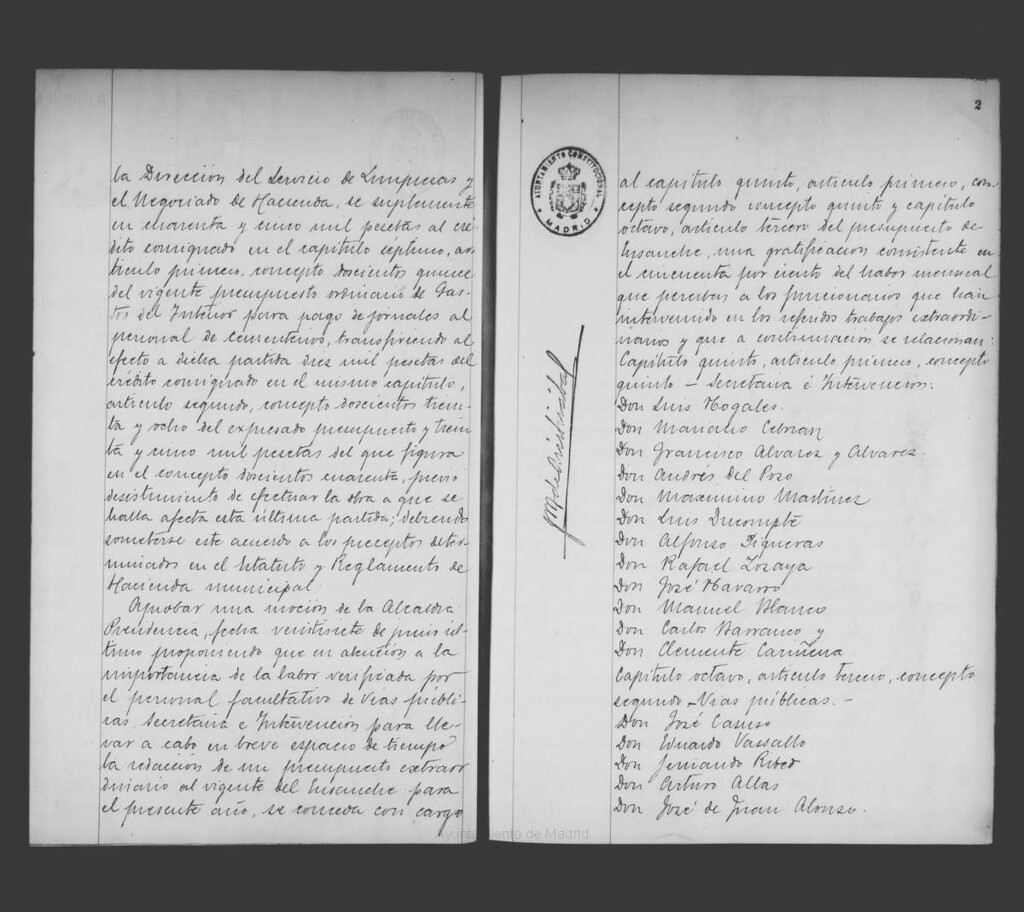 la Dirección del Servicio de Limpiezas y
el Negociado de Hacienda, se suplemente
en cuarenta y cinco mil pesetas al cré-
dito consignado en el capítulo séptimo, ar-
tículo primero, concepto doscientos quince
del vigente presupuesto ordinario de Gas-
tos del Interior para pago de jornales al
personal de cementerios, transfiriendo al
efecto a dicha partida diez mil pesetas del
crédito consignado en el mismo capítulo,
artículo segundo, concepto doscientos trein-
ta y ocho del expresado presupuesto y trein
ta y cinco mil pesetas del que figura
en el concepto doscientos cuarenta, previo
desistimiento de efectuar la obra a que se
halla afecta esta última partida; debiendo
someterse este acuerdo a los preceptos deter-
minados en el Estatuto y Reglamento de
Hacienda municipal.
Aprobar una moción de la Alcaldía
Presidencia, fecha veintisiete de junio úl-
timo proponiendo que en atención a la
importancia de la labor verificada por
el personal facultativo de Vías públi-
cas, Secretaría e Intervención para lle-
var a cabo en breve espacio de tiempo
la redacción de un presupuesto extraor
dinario al vigente del Ensanche para
el presente año, se conceda con cargo
2
AYUNTAMIENTO CONSTITUCIONAL
MADRID
al capítulo quinto, artículo primero, con-
cepto segundo concepto quinto y capítulo
octavo, artículo tercero del presupuesto de
Ensanche, una gratificación consistente en
el cincuenta por ciento del haber mensual
que perciben a los funcionarios que han
intervenido en los referidos trabajos extraordi-
narios y que a continuación se relacionan:
Capítulo quinto, artículo primero, concepto
quinto - Secretaría é Intervención:
Don Luis Nogales.
Don Mariano Cebrian
Don Francisco Alvarez y Alvarez.
Don Andrés del Pozo
Don Maximino Martinez
Don Luis Ducompte
Don Alfonso Figueras
Don Rafael Lozaya
Don José Navarro
Don Manuel Blanco
Don Carlos Barranco y
Don Clemente Cariñena
Capítulo octavo, artículo tercero, concepto
segundo - Vías públicas. -
Don José Casuso
Don Eduardo Vassallo
Don Fernando Ribed
Don Arturo Allas
Don José de Juan Alonso.
Ayuntamiento de Madrid